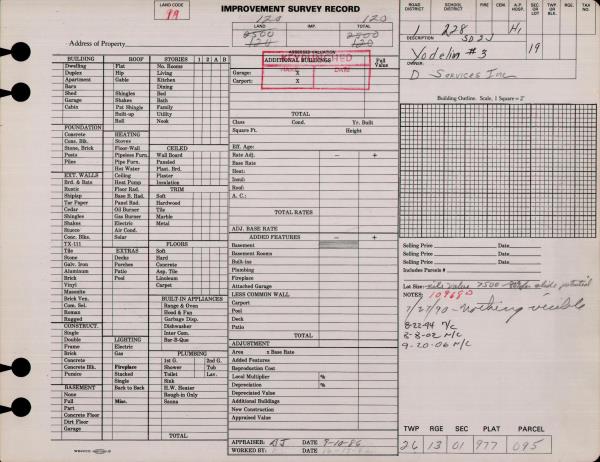 LAND CODE
IMPROVEMENT SURVEY RECORD
120 120
LAND IMP. TOTAL
2500 2500
120 120
ASSESSED VALUATION
Address of Property
BUILDING ROOF STORIES 1 2 A B
Dwelling Flat No. Rooms
Duplex Hip Living
Apartment Gable Kitchen
Barn Dining
Shed Shingles Bed
Garage Shakes Bath
Cabin Pat Shingle Family
Built-up Utility
Roll Nook
FOUNDATION
Concrete HEATING
Conc. Blk. Stoves CEILED
Stone, Brick Floor-Wall Wall Board
Posts Pipeless Furn. Paneled
Piles Pipe Furn. Plast. Brd.
Hot Water Plaster
EXT. WALLS Ceiling Insulation
Brd. & Bats Heat Pump TRIM
Rustic Floor Rad. Soft
Shiplap Base B. Rad. Hardwood
Tar Paper Panel Rad. Tile
Cedar Oil Burner Marble
Shingles Gas Burner Metal
Shakes Electric
Stucco Air Cond.
Conc. Blks. Solar FLOORS
TX-111 Soft
Tile EXTRAS Hard
Stone Decks Concrete
Galv. Iron Porches Asp. Tile
Aluminum Patio Linoleum
Brick Pool Carpet
Vinyl
Masonite BUILT-IN APPLIANCES
Brick Ven. Range & Oven
Com. Sel. Hood & Fan
Roman Garbage Disp.
Rugged Dishwasher
CONSTRUCT. Inter Com.
Single Bar-B-Que
Double LIGHTING
Frame Electric PLUMBING
Brick Gas 1st G. 2nd G.
Concrete Fireplace Shower Tub
Concrete Blk. Stacked Toilet Lav.
Pumice Single Sink
BASEMENT Back to Back H.W. Heater
None Rough-in Only
Full Misc. Sauna
Part
Concrete Floor
Dirt Floor
Garage TOTAL
ADDITIONAL BUILDINGS Full Value
DATE
Garage: X
Carport: X
TOTAL
Class Cond. Yr. Built
Square Ft. Height
Eff. Age:
Rate Adj. − +
Base Rate
Heat:
Insul:
Roof:
A. C.:
TOTAL RATES
ADJ. BASE RATE
ADDED FEATURES − +
Basement
Basement Rooms
Built-ins
Plumbing
Fireplace
Attached Garage
LESS COMMON WALL
Carport
Pool
Deck
Patio
TOTAL
ADJUSTMENT
Area x Base Rate
Added Features
Reproduction Cost
Local Multiplier %
Depreciation %
Depreciated Value
Additional Buildings
New Construction
Appraised Value
APPRAISER: DATE 9-10-86
WORKED BY: DATE
ROAD DISTRICT SCHOOL DISTRICT FIRE CEM. A.P. HOSP. SEC OR LOT TWP. OR BLK. RGE. TAX NO.
228 H1
DESCRIPTION SD2J
Yodelin #3 19
OWNER
D Services Inc
Building Outline. Scale, 1 Square = 2'
Selling Price Date
Selling Price Date
Selling Price Date
Includes Parcel #
Lot Size: site value 7500 slide potential
NOTES: 109680
7/27/90 - Nothing visible
8-22-94 N/C
8-8-02 N/C
9-20-06 N/C
TWP RGE SEC PLAT PARCEL
26 13 01 977 095